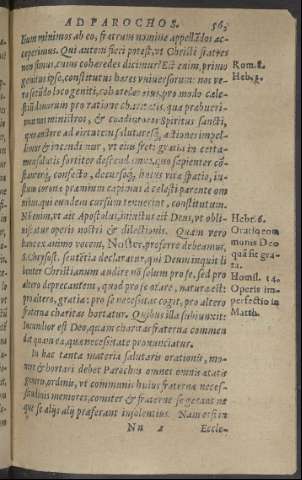 AD PAROCHOS. 563
Eum minimos ab eo, fratrum nomine appellādos ac-
ceperimus. Qui autem fieri potest, vt Christi fratres
non simus, cuius coheredes dicimur? Est enim, primo
genitus ipse, constitutus hæres vniuersorum: nos ve-
rò secūdo loco geniti, coheredes eius, pro modo cæle-
stium
pro ratione charitatis, qua præbueri-
mus ministros, & coadiutores Spiritus sancti,
quo auctore ad virtutem salutaresq́; actiones impel-
limur & incendimur, vt eius freti gratia in certa-
men salutis fortiter descendamus, quo sapienter cō-
stanterq́; confecto, decursoq́; huius vitæ spatio, iu-
stum coronæ præmium capiamus à cælesti parente om
nibus, qui eundem cursum tenuerint, constitutum.
Non enim, vt ait Apostolus, iniustus est Deus, vt obli-
uiscatur operis nostri & dilectionis. Quàm verò
hanc ex animo vocem, Noster, proferre debeamus,
S. Chrysost. sentētia declaratur, qui Deum inquit li
benter Christianum audire nō solum pro se, sed pro
altero deprecantem, quod pro se orare, natura est:
pro altero, gratia: pro se necessitas cogit, pro altero
fraterna charitas hortatur. Quibus illa subiunxit:
Iucundior est Deo, quam charitas fraterna commen
dat quàm ea, quæ necessitate pronunciatur.
In hac tanta materia salutaris orationis, mo-
nere & hortari debet Parochus omnes omnis ætatis
generis, ordinis, vt communis huius fraternæ neces-
situdinis memores, comiter & fraternè se gerant ne-
que se alijs alij præferant insolentius. Nam etsi in
Nn 2 Eccle-
Rom. 8.
Heb. 1.
Hebr. 6.
Oratio com
munis Deo
quā sit gra-
ta.
Homil. 14.
Operis im-
perfectio in
Matth.